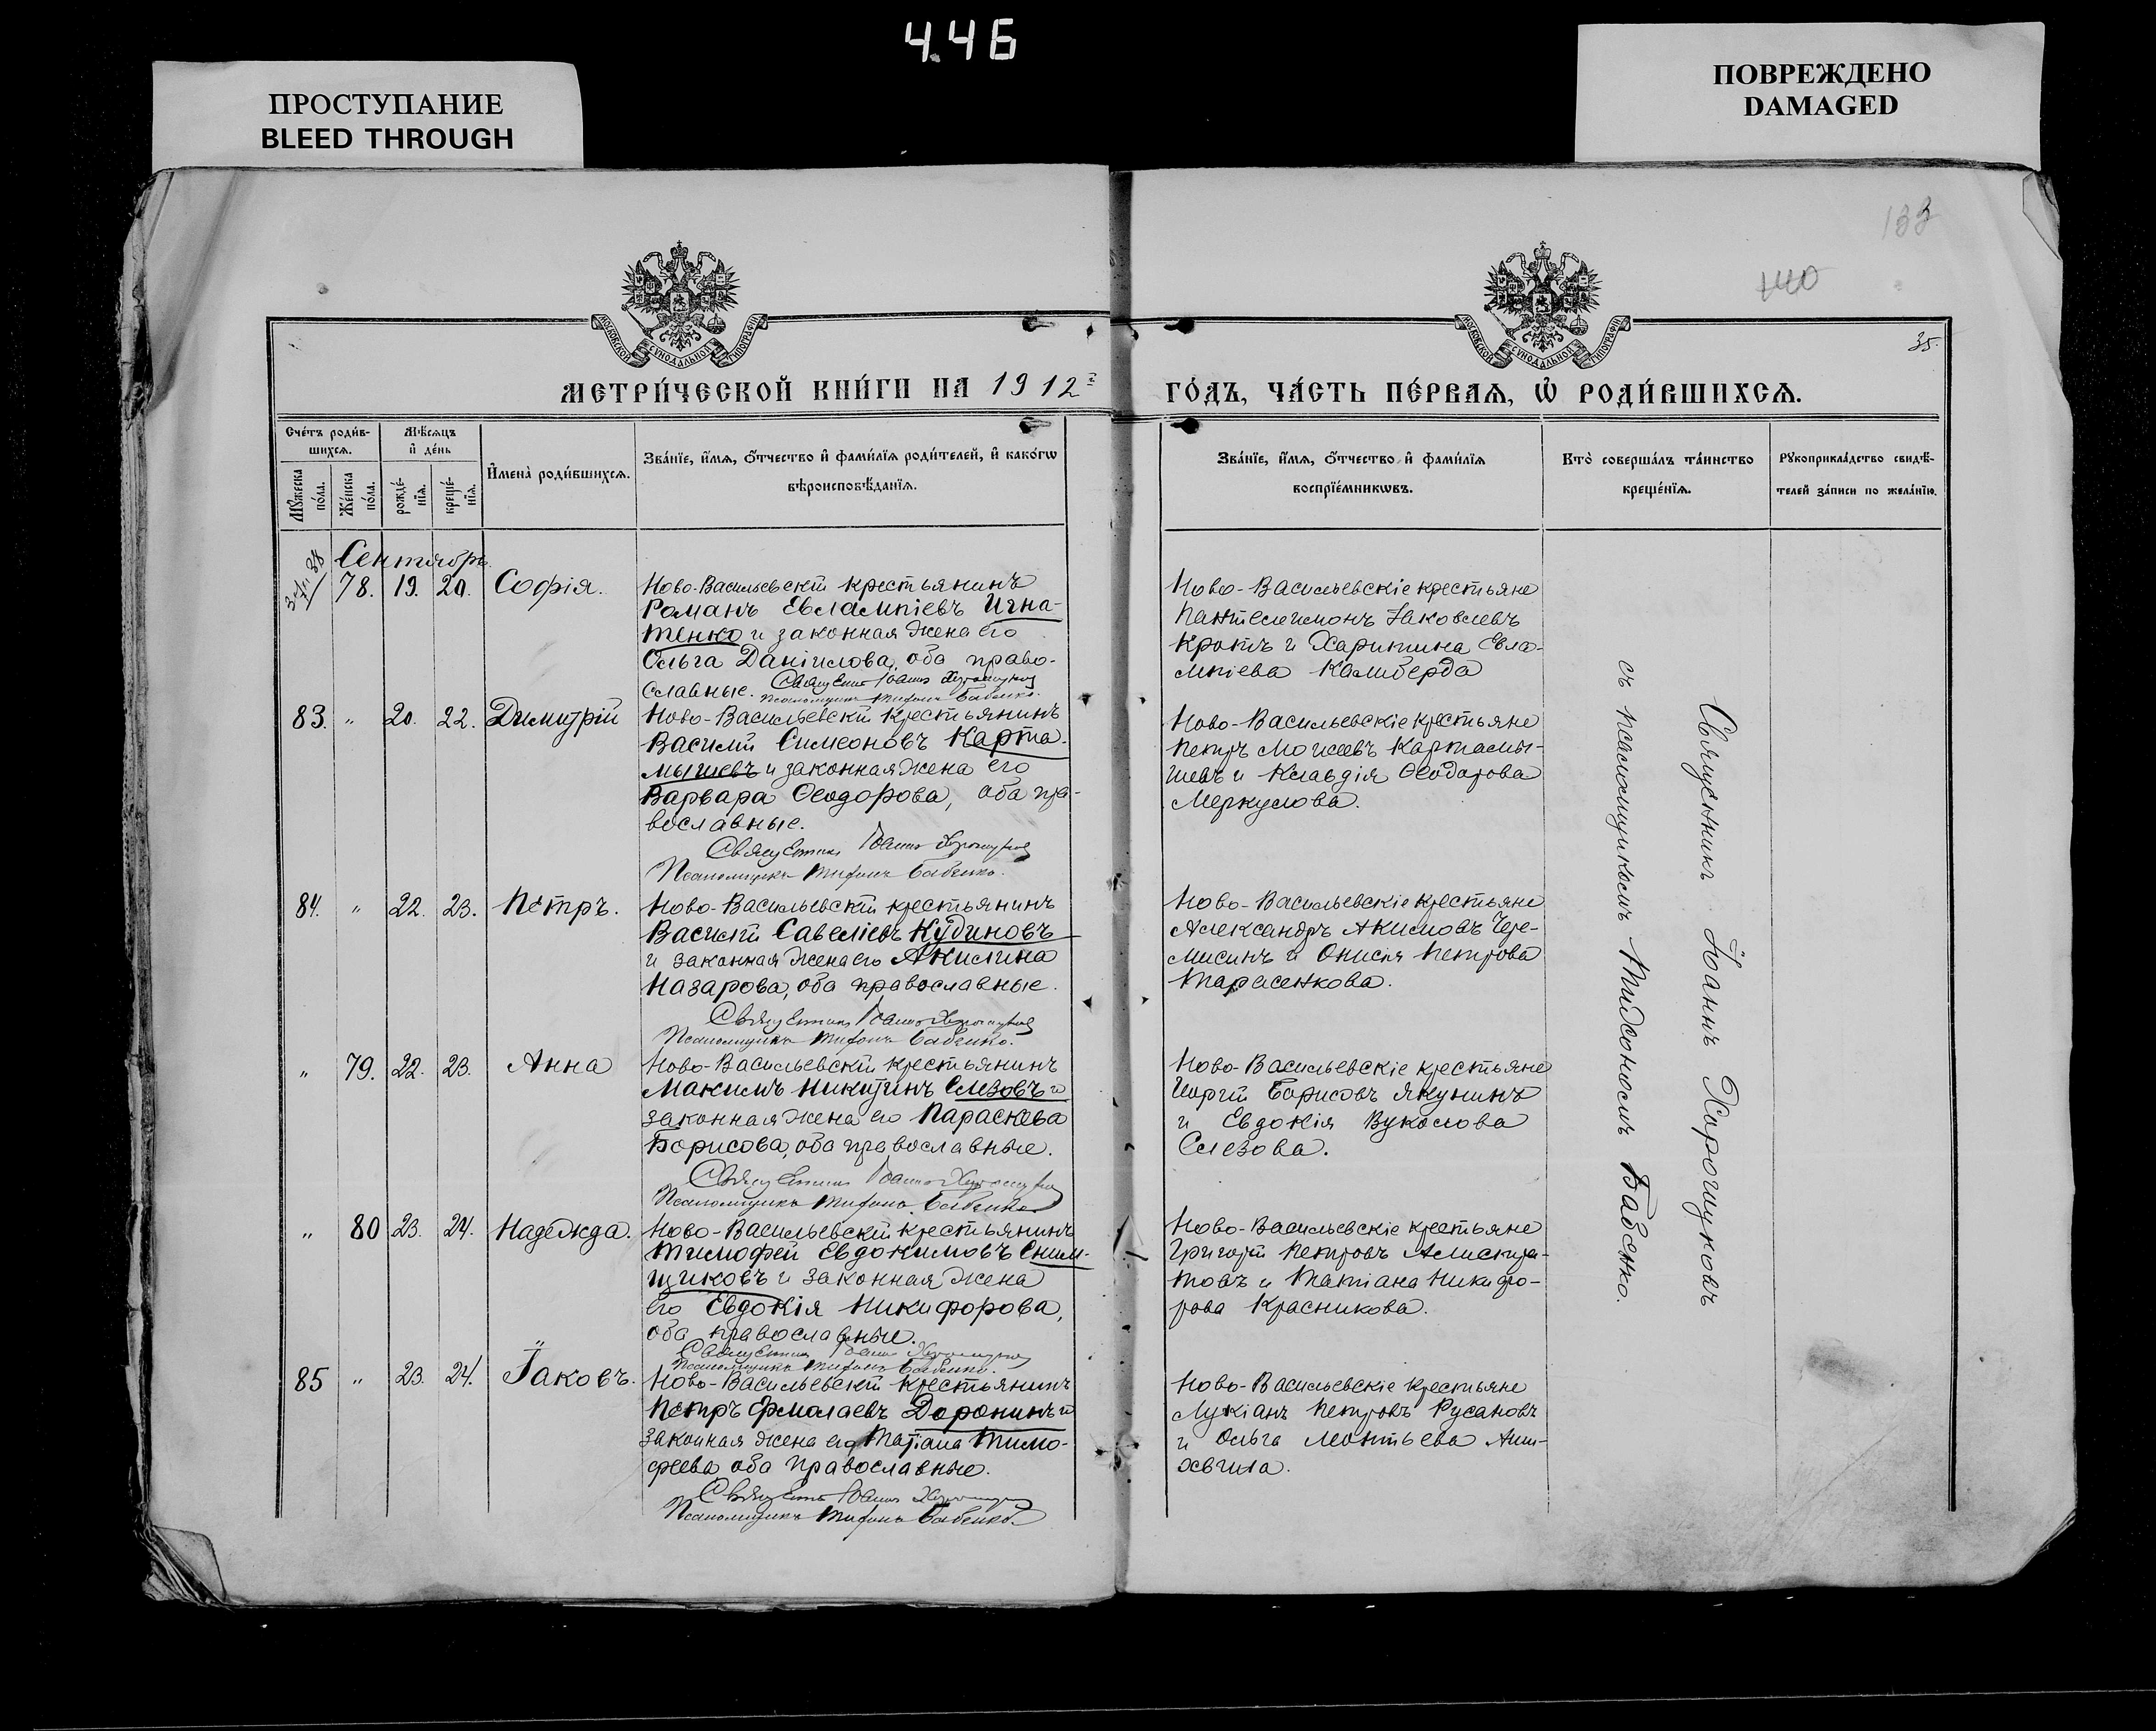 4.4Б
ПРОСТУПАНИЕ
BLEED THROUGH
ПОВРЕЖДЕНО
DAMAGED
133
140
35.
МОСКОВСКОЙ СѴНОДАЛЬНОЙ ТИПОГРАФІИ
МОСКОВСКОЙ СѴНОДАЛЬНОЙ ТИПОГРАФІИ
МЕТРИ́ЧЕСКОЙ КНИ́ГИ НА 1912й
ГО́ДЪ, ЧА́СТЬ ПЕ́РВАѦ, Ѡ҆ РОДИ́ВШИХСѦ.
Сче́тъ роди́в-
шихсѧ.
Мꙋ́жеска
по́ла.
Же́нска
по́ла.
Мѣ́сѧцъ
и҆ де́нь
рожде́-
нїѧ.
креще́-
нїѧ.
И҆мена̀ роди́вшихсѧ.
Зва́нїе, и҆́мѧ, ѻ҆́тчество и҆ фами́лїѧ роди́телей, и҆ како́гѡ
вѣроисповѣ́данїѧ.
Зва́нїе, и҆́мѧ, ѻ҆́тчество и҆ фами́лїѧ
воспрїе́мникѡвъ.
Кто̀ соверша́лъ та́инство
креще́нїѧ.
Рꙋкоприкла́дство свидѣ́-
телей за́писи по жела́нїю.
Сентябрь.
78. 19. 20. Софія.
Ново-Васильевскій крестьянинъ
Романъ Евлампіевъ Игна-
тенко и законная жена его
Ольга Даніилова, оба право-
славные. Священникъ Іоаннъ Хорошунов
Псаломщикъ Тифонъ Бабенко.
Ново-Васильевскіе крестьяне
Пантелеимонъ Іаковлевъ
Кротъ и Харитина Евла-
мпіева Калиберда
83. " 20. 22. Димитрій
Ново-Васильевскій крестьянинъ
Василій Симеоновъ Карта-
мышевъ и законная жена его
Варвара Ѳеодорова, оба пра-
вославные.
Священникъ Іоаннъ Хорошунов
Псаломщикъ Тифонъ Бабенко.
Ново-Васильевскіе крестьяне
Петръ Моисеевъ Картамы-
шевъ и Клавдія Ѳеодорова
Меркулова.
84. " 22. 23. Петръ.
Ново-Васильевскій крестьянинъ
Василій Савеліевъ Кудиновъ
и законная жена его Акилина
Назарова, оба православные.
Священникъ Іоаннъ Хорошунов
Псаломщикъ Тифонъ Бабенко.
Ново-Васильевскіе крестьяне
Александръ Акимовъ Чере-
мисинъ и Онисія Петрова
Тарасенкова.
" 79. 22. 23. Анна
Ново-Васильевскій крестьянинъ
Максимъ Никитинъ Слезовъ и
законная жена его Параскева
Борисова, оба православные.
Священникъ Іоаннъ Хорошунов
Псаломщикъ Тифонъ Бабенко
Ново-Васильевскіе крестьяне
Георгій Борисовъ Якунинъ
и Евдокія Вуколова
Слезова.
" 80 23. 24. Надежда.
Ново-Васильевскій крестьянинъ
Тимофей Евдокимовъ
щиковъ и законная жена
его Евдокія Никифорова,
оба православные.
Священникъ Іоаннъ Хорошунов
Псаломщикъ Тифонъ Бабенко.
Ново-Васильевскіе крестьяне
Григорій Петровъ
и Татіана Никифо-
рова Красникова.
85 " 23. 24. Іаковъ.
Ново-Васильевскій крестьянинъ
Петръ Ермолаевъ Доронинъ и
законная жена его Татіана Тимо-
феева, оба православные.
Священникъ Іоаннъ Хорошунов
Псаломщикъ Тифонъ Бабенко.
Ново-Васильевскіе крестьяне
Лукіанъ Петровъ Русановъ
и Ольга Леонтьева
Священникъ Іоаннъ Хорошуновъ
съ псаломщикомъ Тифономъ Бабенко.